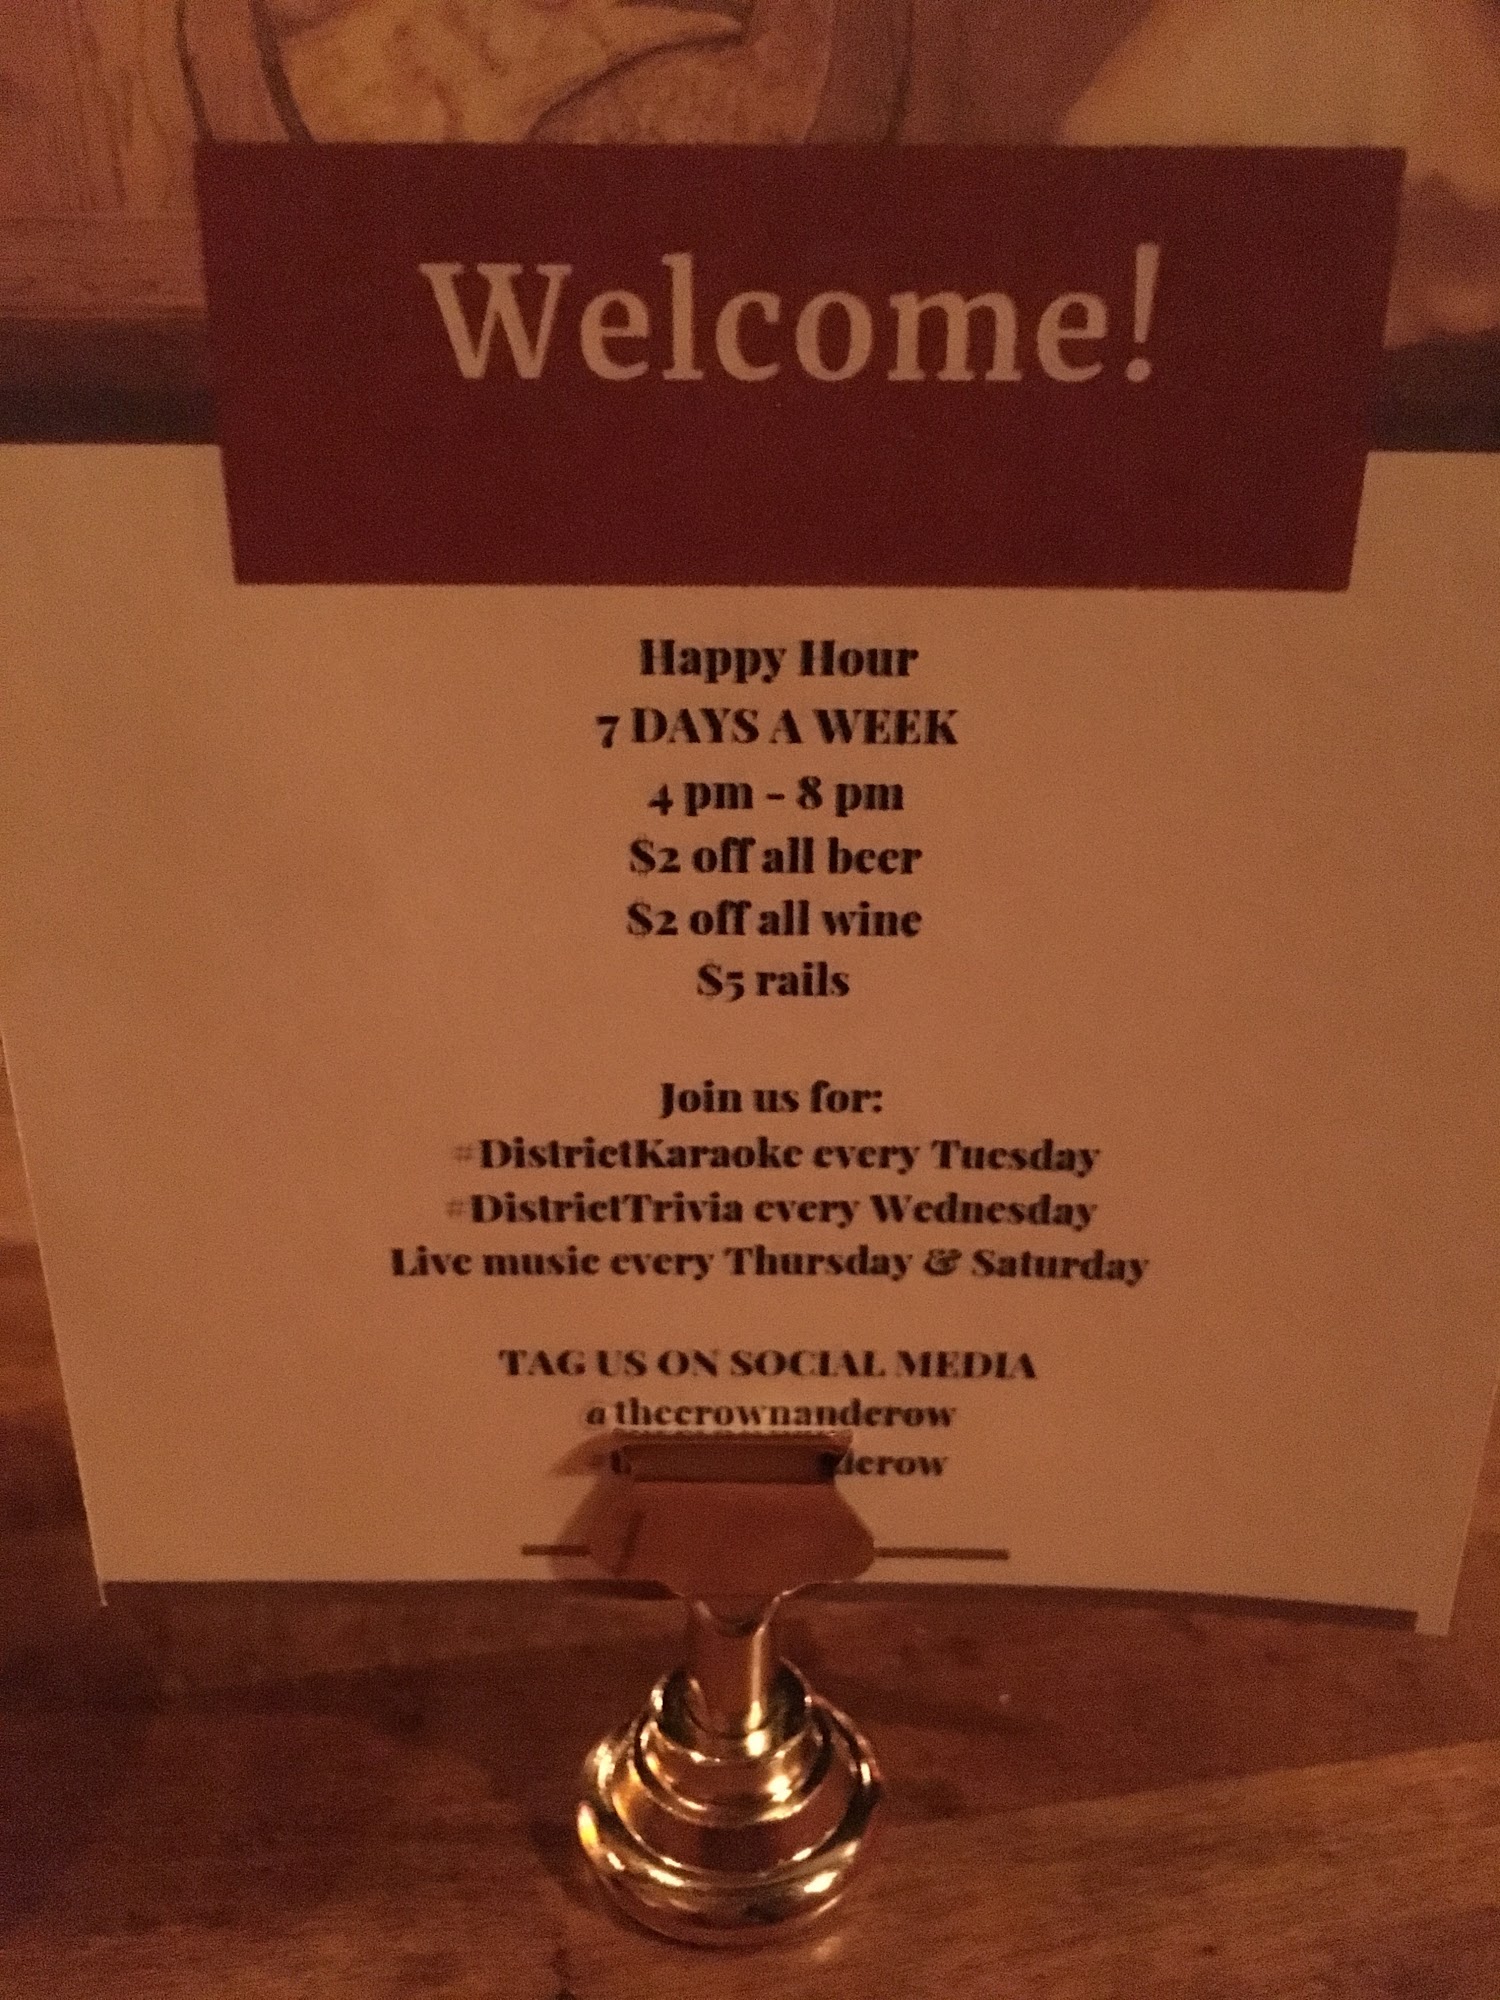 Welcome!
Happy Hour
7 DAYS A WEEK
4 pm - 8 pm
$2 off all beer
$2 off all wine
$5 rails
Join us for:
#DistrictKaraoke every Tuesday
#DistrictTrivia every Wednesday
Live music every Thursday & Saturday
TAG US ON SOCIAL MEDIA
@thecrownandcrow